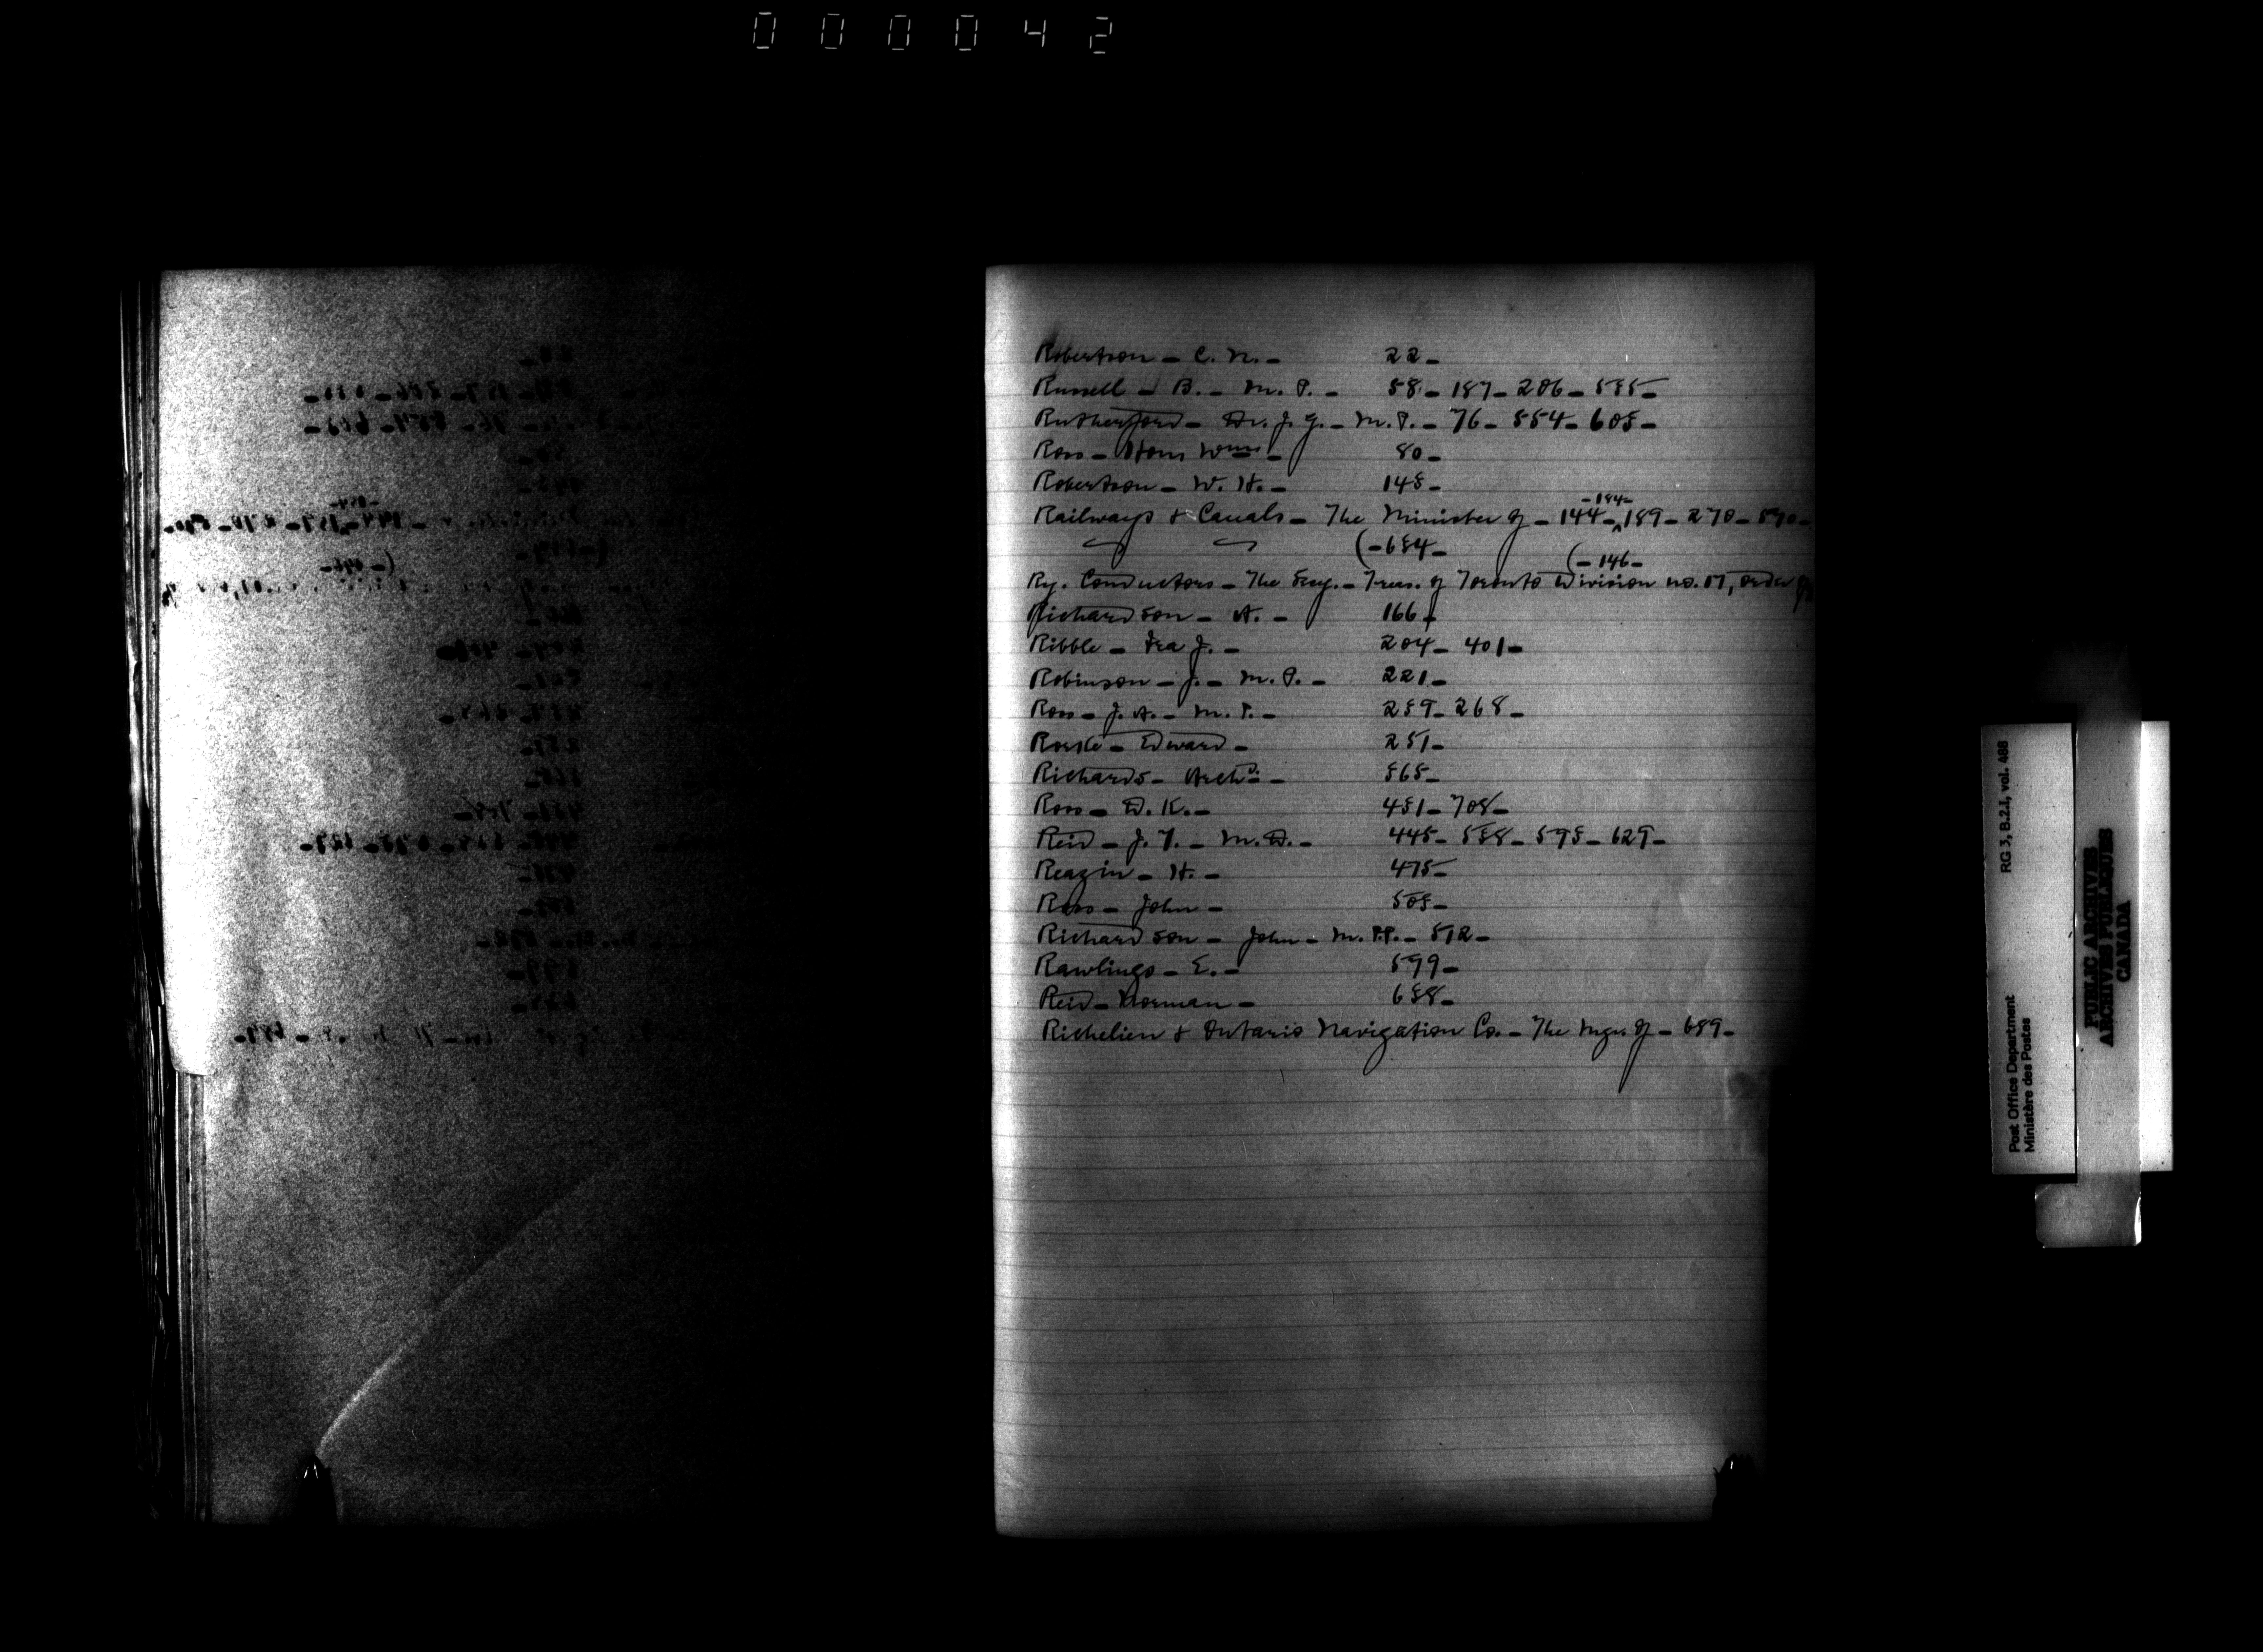 000042
Robertson - C. N. - 22 -
Russell - B. - M. P. - 58 - 187 - 206 - 535 -
Rutherford - Dr. J. G. - M. P. - 76 - 554 - 605 -
Ross - Hon. Wm - 80 -
Robertson - W. H. - 145 -
- 184 -
Railways & Canals - The Minister of - 144 - 189 - 270 - 590 -
( - 654 -
( - 146 -
Ry. Conductors - The Secy. - Treas. of Toronto Division no. 17, Order of
Richardson - A. - 166 -
Ribble - Ira J. - 204 - 401 -
Robinson - J. - M. P. - 221 -
Ross - J. A. - M. P. - 259 - 268 -
Edward - 251 -
Richards - Archd. - 565 -
Ross - D. K. - 451 - 708 -
Reid - J. Y. - M. D. - 445 - 558 - 595 - 629 -
Reazin - H. - 475 -
Ross - John - 505 -
Richardson - John - M. P.P. - 512 -
Rawlings - E. - 599 -
Reid - Norman - 658 -
Richelieu & Ontario Navigation Co. - The Mgr. of - 689 -
RG 3, B.2.I, vol. 488
Post Office Department
Ministère des Postes
PUBLIC ARCHIVES
ARCHIVES PUBLIQUES
CANADA